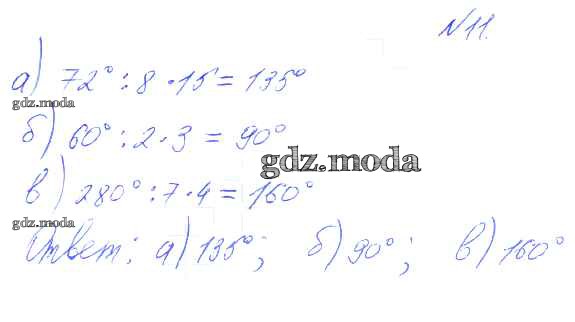 №11.
а) 72° : 8 · 15 = 135°
gdz.moda
б) 60° : 2 · 3 = 90°
gdz.moda
в) 280° : 7 · 4 = 160°
gdz.moda
Ответ: а) 135°; б) 90°; в) 160°